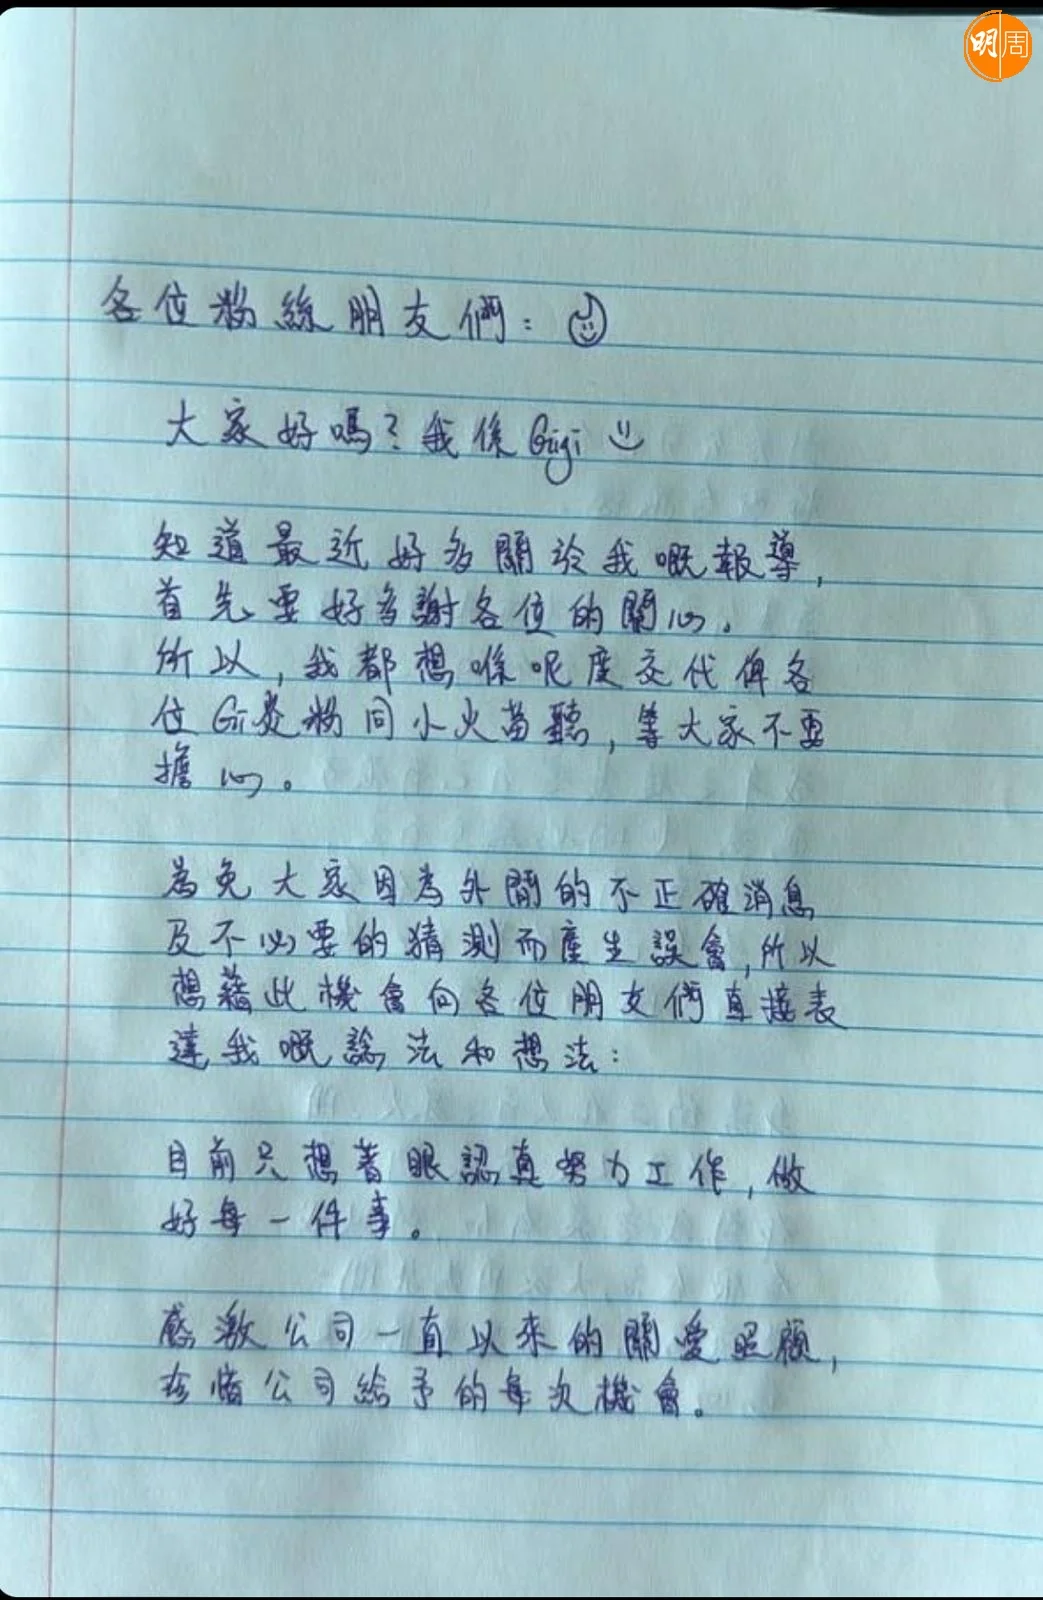 明周
各位粉絲朋友們：
大家好嗎？我係Gigi
知道最近好多關於我嘅報導，
首先要好多謝各位的關心。
所以，我都想喺呢度交代俾各
位Gi炎粉同小火苗聽，等大家不要
擔心。
為免大家因為外間的不正確消息
及不必要的猜測而產生誤會，所以
想藉此機會向各位朋友們直接表
達我嘅諗法和想法：
目前只想着眼認真努力工作，做
好每一件事。
感激公司一直以來的關愛照顧，
珍惜公司給予的每次機會。